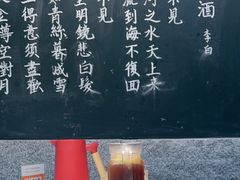 酒 李白
不見
河之水天上來
流到海不復回
不見
堂明鏡悲白髮
青絲暮成雪
生得意須盡歡
空對月